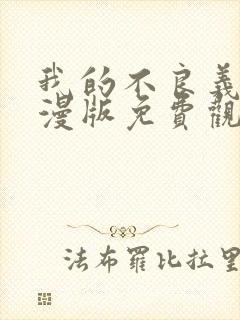 我的不良義
漫版免費觀
法布羅比拉里